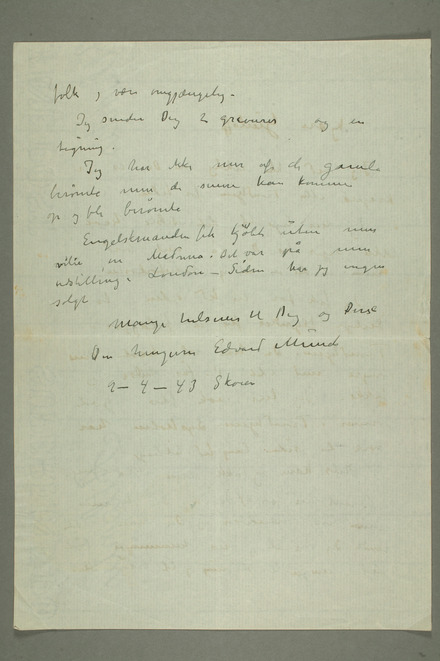 folk, være omgjængelig –
Jeg sender Dig 2 gravurer og en
tegning.
Jeg har ikke mer af de gamle
berømte men de samme kan komme
op og bli berømte
Engelskmanden fik kjøbt uten min
vilie en Madonna. Det var på min
utstilling i London – Siden har jeg ingen
solgt
Mange hilsener til Dig og Disse
Din hengivne Edvard Munch
9 – 4 – 43 Skøien